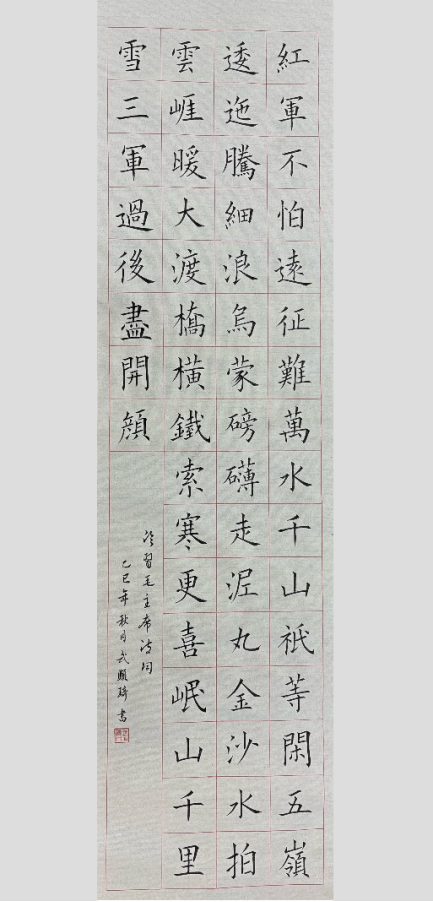 紅軍不怕遠征難萬水千山祇等閑五嶺
逶迤騰細浪烏蒙磅礴走泥丸金沙水拍
雲崕暖大渡橋橫鐵索寒更喜岷山千里
雪三軍過後盡開顏
毛主席诗词
乙巳年秋月武顯琦書